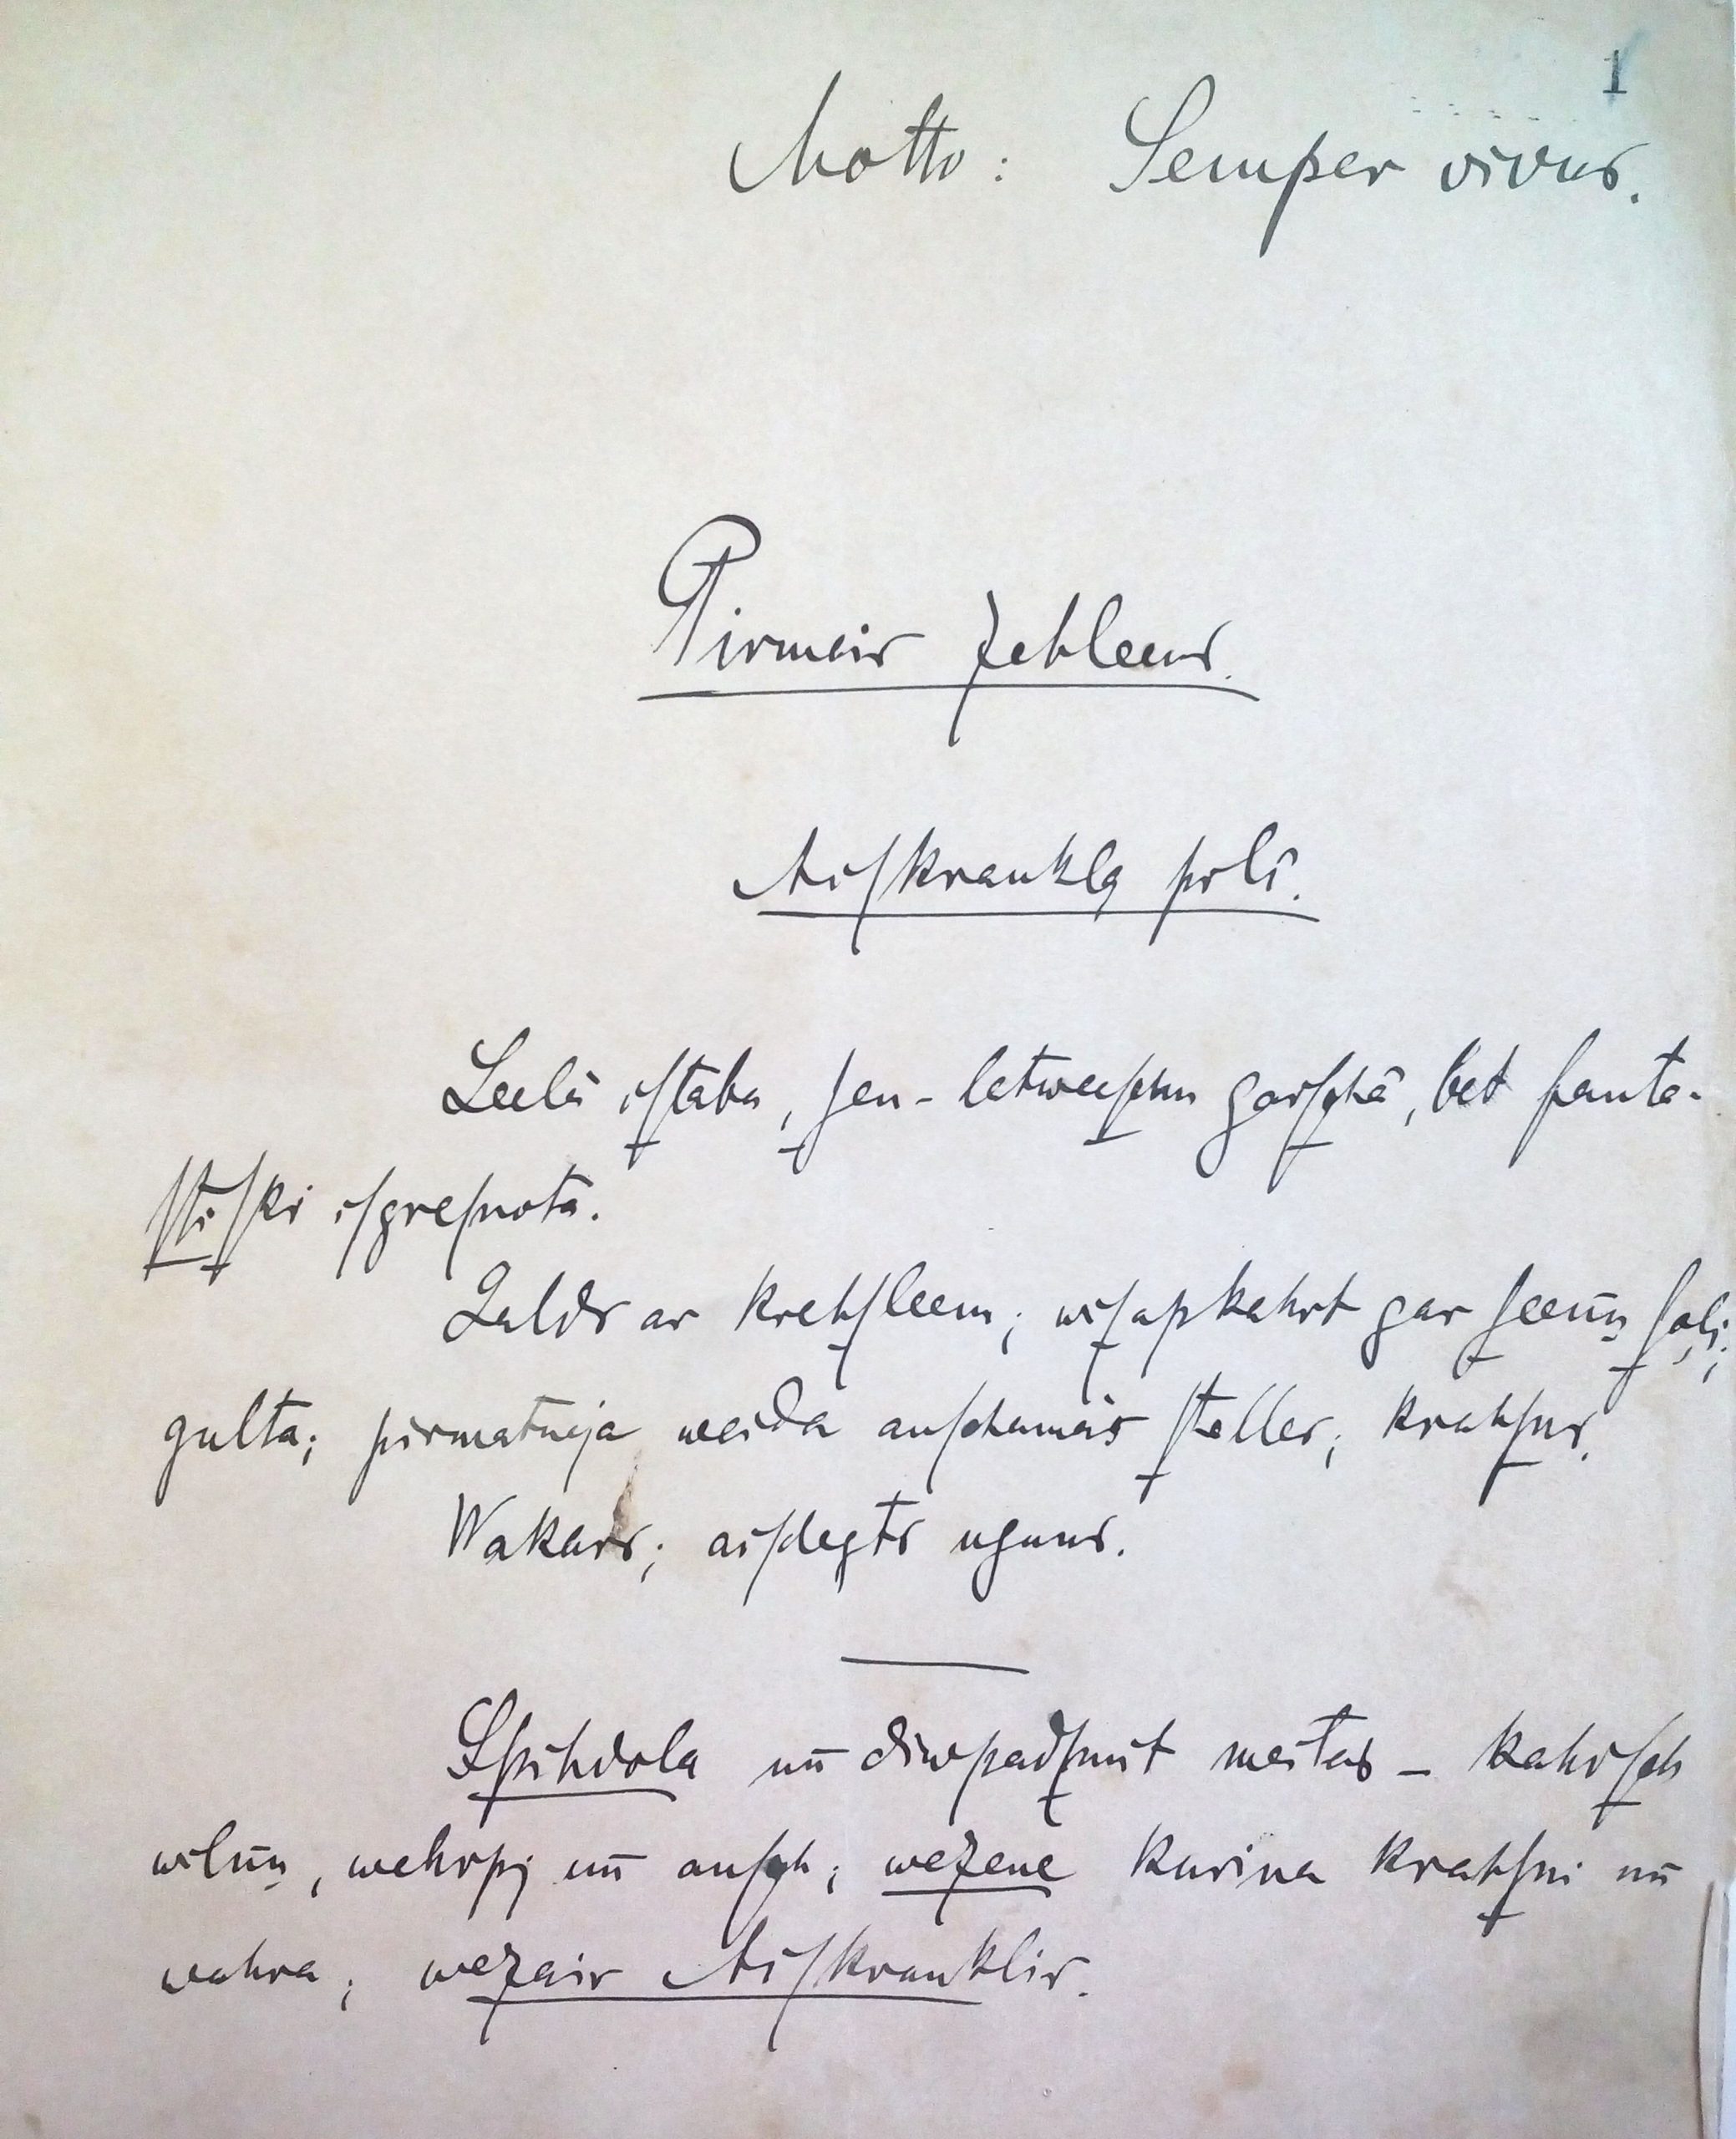 1
Motto: Semper vivus.
Pirmais zehleens.
Aiſkraukļa pilī.
Leelā iſtaba, ſen-latweeſchu garſchā, bet fanta-
ſtiſki iſgreſnota.
Galds ar krehſleem; wiſapkahrt gar ſeenu ſoli;
gulta; pirmatneja weida auſchamās ſtelles; krahſns.
Wakars; aiſdegts uguns.
Spihdola un diwpadſmit meitas – kahrſch
wilnu, wehrpj un auſch; wezene kurina krahſni un
wahra; wezais Aiſkrauklis.